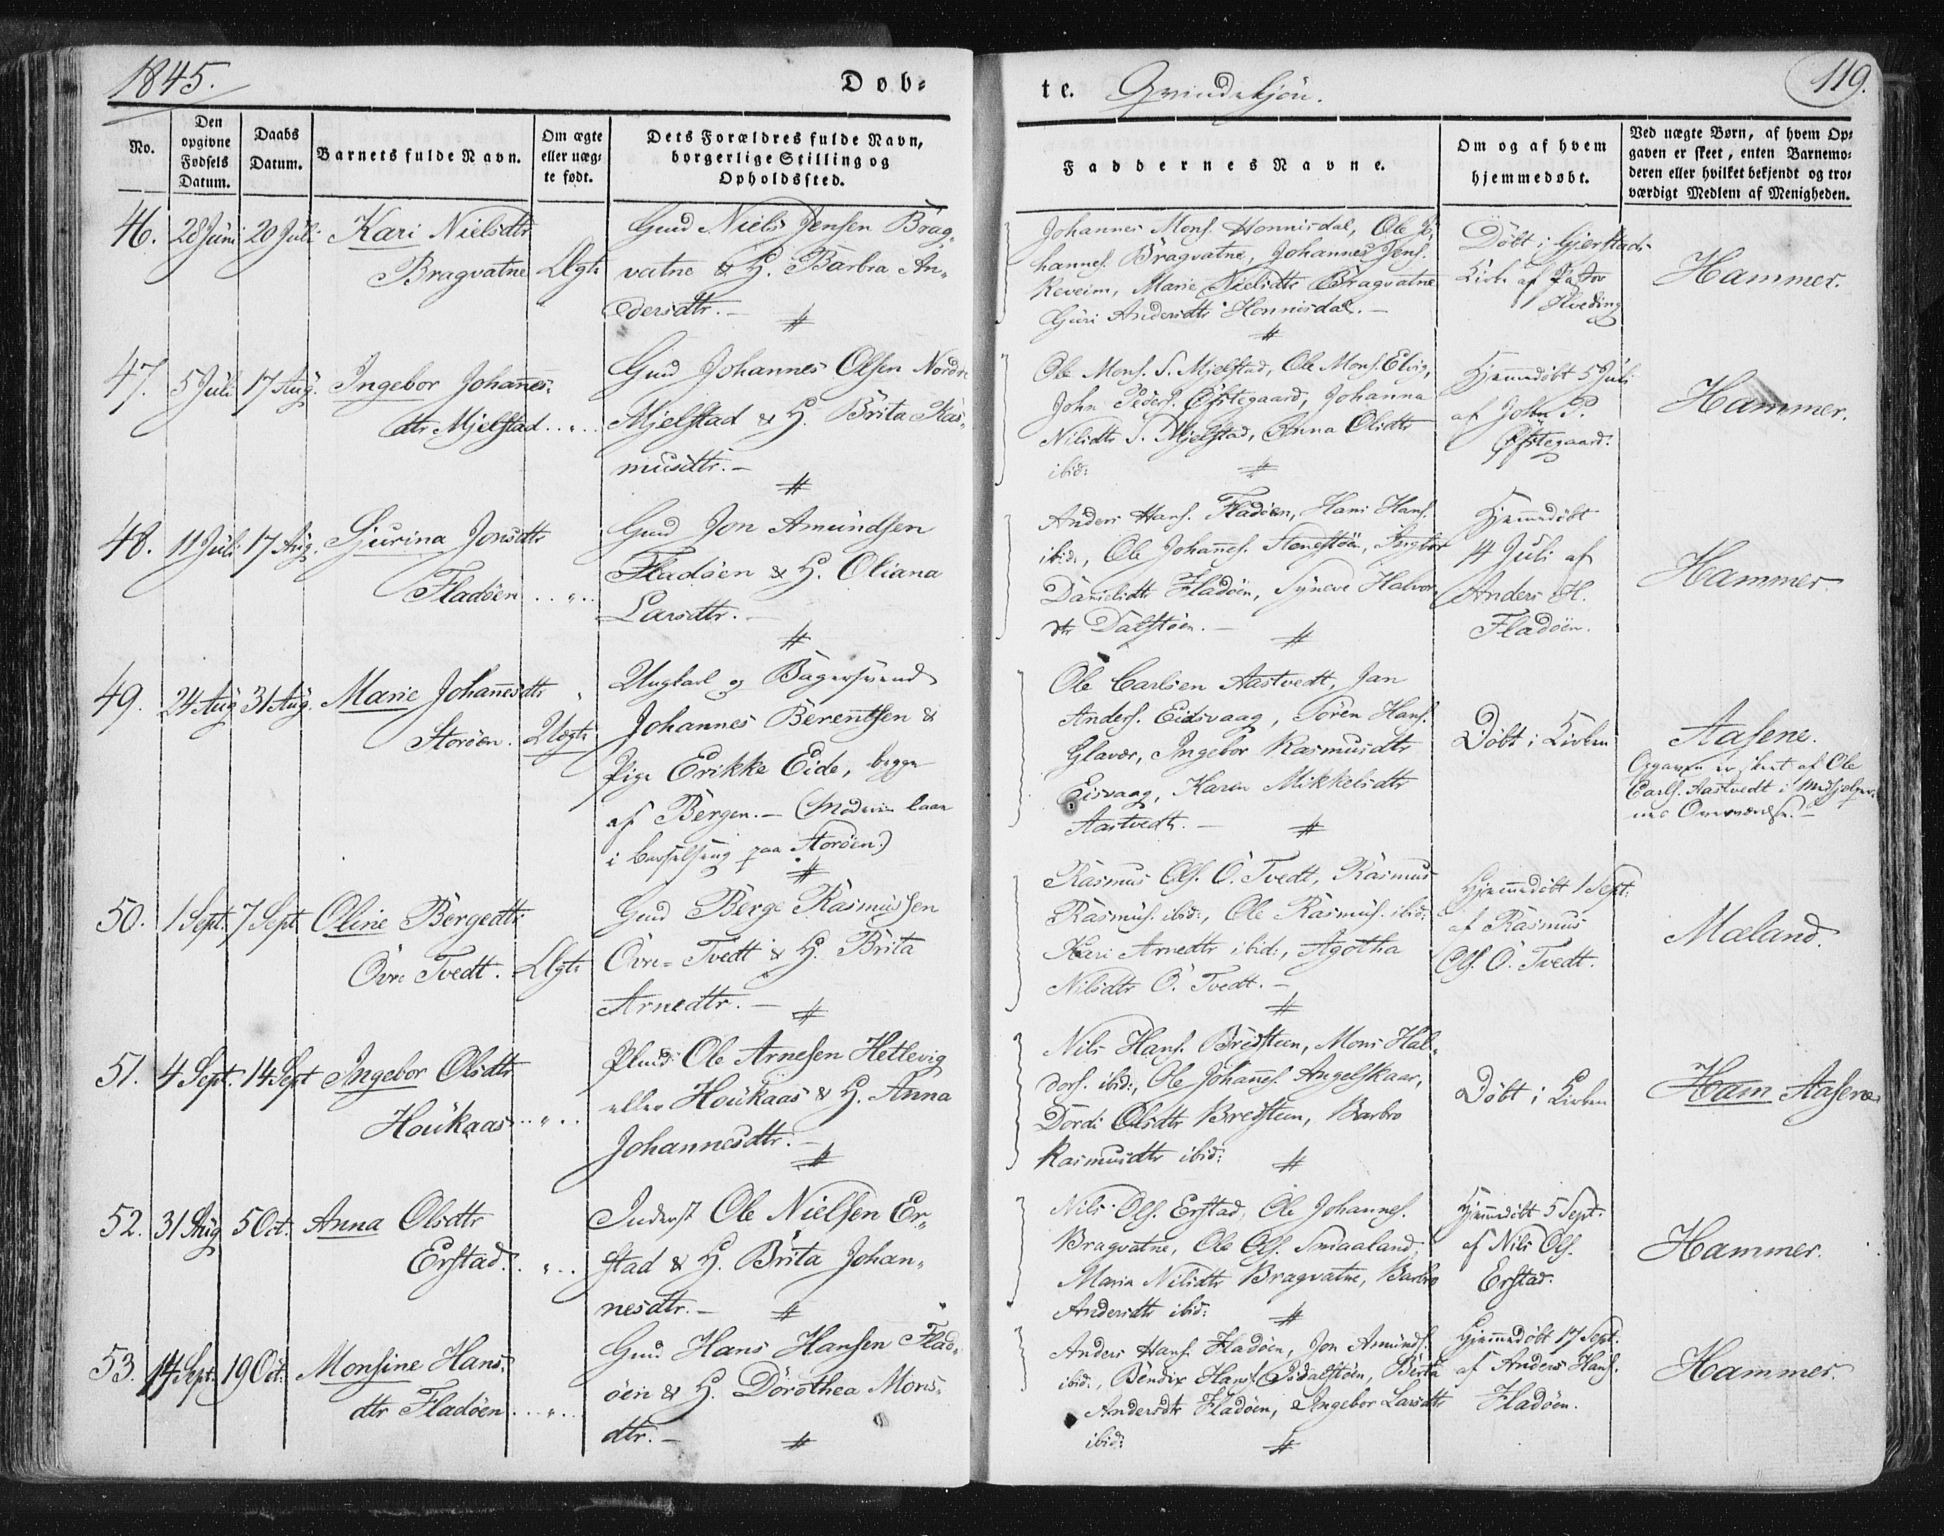 1845.
Døb-
te. Qvindekjøn.
119.
No.
Den
opgivne
Fødsels
Datum.
Daabs
Datum.
Barnets fulde Navn.
Om ægte
eller uæg-
te født.
Dets Forældres fulde Navn,
borgerlige Stilling og
Opholdssted.
Faddernes Navne.
Om og af hvem
hjemmedøbt.
Ved uægte Børn, af hvem Op-
gaven er skeet, enten Barnemo-
deren eller hvilket bekjendt og tro-
værdigt Medlem af Menigheden.
46. 28 Juni 20 Juli Kari Nielsdtr
Bragvatne Ægte
Gmd Niels Jensen Brag-
vatne & H. Barbra An-
dersdtr. -
Johannes Mons. Honnisdal, Ole Jo-
hannes. Bragvatne, Johannes Jens.
Reveim, Marie Nielsdtr Bragvatne
Guri Andersdtr Honnisdal. -
Döbt i Gjerstads
Kirke af Pastor
Hveding
Hammer.
47. 5 Juli 17 Aug. Ingebor Johannes-
dtr Mjelstad
Gmd Johannes Olsen Nordre
Mjelstad & H. Brita Ras-
musdtr. -
Ole Mons. S. Mjelstad, Ole Mons. Elvig,
John Peders. Öfstegaard, Johanna
Nilsdtr S. Mjelstad, Anna Olsdtr
ibid:
Hjemmedöbt 5 Juli
af John P.
Öfstegaard.
Hammer.
48. 11 Juli 17 Aug. Sjurina Jonsdtr
Fladöen
Gmd Jon Amundsen
Fladöen & H. Oliana
Larsdtr. -
Anders Hans. Fladöen, Hans Hans.
ibid:, Ole Johannes. Stengstöen, Ingbor
Danielsdtr Fladöen, Syneve Halvor
dtr Dalstöen. -
Hjemmedöbt
14 Juli af
Anders H.
Fladöen.
Hammer
49. 24 Aug 31 Aug. Marie Johannesdtr
Storöen. Uægte
Ungkarl og Bagersvend
Johannes Berentsen &
Pige Erikke Eide, begge
af Bergen. - (Moderen laae
i Barselseng paa Storöen.)
Ole Carlsen Aastvedt, Jan
Anders. Eidsvaag, Sören Hans.
Glavær, Ingebor Rasmusdtr
Eisvaag, Karen Mikkelsdtr
Aastvedt. -
Döbt i Kirken
Aasene.
Opgaven er skeet af Ole
Carls. Aastvedt i Medhjelper-
nes Overværelse. -
50. 1 Sept. 7 Sept Oline Bergedtr
Övre Tvedt. Ægte
Gmd Berge Rasmussen
Övre-Tvedt & H. Brita
Arnedtr. -
Rasmus Ols. Ö. Tvedt, Rasmus
Rasmus. ibid:, Ole Rasmus. ibid:
Kari Arnedtr ibid:, Agotha
Nilsdtr Ö. Tvedt. -
Hjemmedöbt 1 Sept.
af Rasmus
Ols. Ö. Tvedt.
Mæland.
51. 4 Sept. 14 Sept Ingebor Olsdtr
Houkaas
Plmd: Ole Arnesen Hetlevig
eller Houkaas & H. Anna
Johannesdtr. -
Nils Hans. Bredsteen, Mons Hal-
dors. ibid:, Ole Johannes. Angelskaar,
Dordi Olsdtr Bredsteen, Barbro
Rasmusdtr ibid:
Döbt i Kirken
Ham Aasene
52. 31 Aug 5 Oct. Anna Olsdtr
Erstad.
Inderst Ole Nielsen Er-
stad & H. Brita Johan-
nesdtr. -
Nils Ols. Erstad, Ole Johannes.
Bragvatne, Ole Ols. Smaaland,
Maria Nilsdtr Bragvatne, Barbro
Andersdtr ibid:
Hjemmedöbt 5 Sept.
af Nils Ols.
Erstad.
Hammer.
53. 14 Sept. 19 Oct. Monsine Hans-
dtr Fladöen
Gmd Hans Hansen Flad-
öen & H. Dorothea Mons-
dtr. -
Anders Hans. Fladöen, Jon Amunds.
ibid:, Bendix Hans. Dalstöen, Berta
Andersdtr Fladöen, Ingebor Larsdtr
ibid:
Hjemmedöbt 17 Sept.
af Anders Hans.
Fladöen.
Hammer.